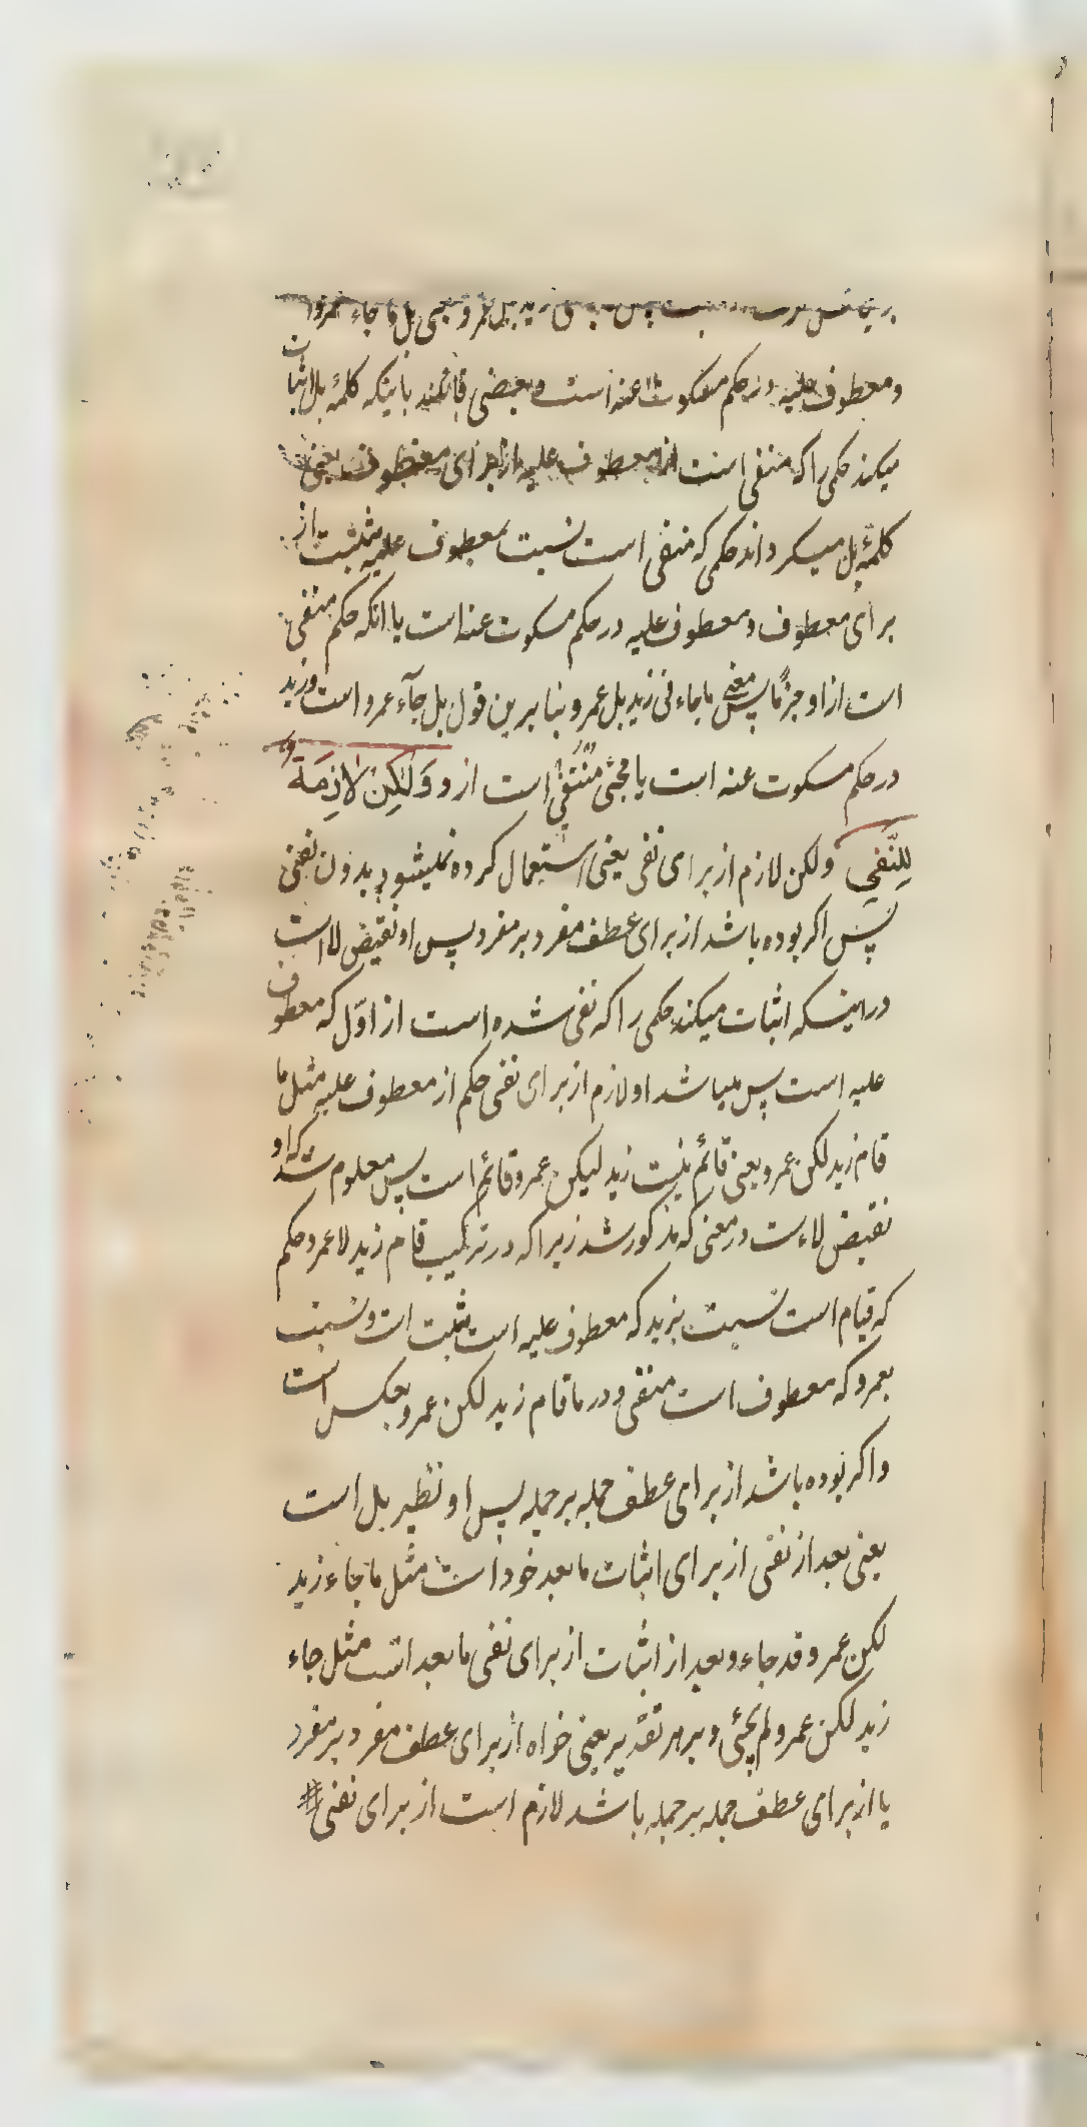 زید بل عمرو یعنی بل ما جاء عمرو
و معطوف علیه در حکم مسکوت عنه است و بعضی قائلند باینکه کلمهٔ بل اثبات
میکند حکمی را که منفی است از معطوف علیه از برای معطوف یعنی
کلمهٔ بل میکرداند حکمی که منفی است نسبت بمعطوف علیه مثبت از
برای معطوف و معطوف علیه در حکم مسکوت عنه است یا انکه حکم منفی
است از او جزمًا پس معنی ما جاءنی زید بل عمرو بنابرین قول بل جآء عمرو است و زید
در حکم مسکوت عنه است یا مجئی منتفی است ازو وَلٰكِنْ لَازِمَةٌ
لِلنَّفْيِ ولکن لازم از برای نفی یعنی استعمال کرده نمیشود بدون نفی
پس اکر بوده باشد از برای عطف مفرد بر مفرد پس او نقیض لا است
در اینکه اثبات میکند حکمی را که نفی شده است از اوّل که معطوف
علیه است پس میباشد او لازم از برای نفی حکم از معطوف علیه مثل ما
قام زید لکن عمرو یعنی قائم نیست زید لیکن عمرو قائم است پس معلوم شد که او
نقیض لاست در معنی که مذکور شد زیرا که در ترکیب قام زید لا عمرو حکم
که قیام است نسبت بزید که معطوف علیه است مثبت است و نسبت
بعمرو که معطوف است منفی و در ما قام زید لکن عمرو بعکس است
و اکر بوده باشد از برای عطف جمله بر جمله پس او نظیر بل است
یعنی بعد از نفی از برای اثبات ما بعد خود است مثل ما جاء زید
لکن عمرو قد جاء و بعد از اثبات از برای نفی ما بعد است مثل جاء
زید لکن عمرو لم یجئی و بر هر تقدیر یعنی خواه از برای عطف مفرد بر مفرد
یا از برای عطف جمله بر جمله باشد لازم است از برای نفی